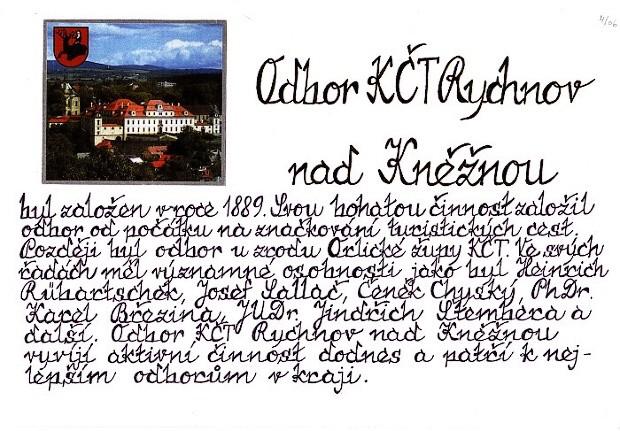 4/06
Odbor KČT Rychnov
nad Kněžnou
byl založen v roce 1889. Svou bohatou činnost založil
odbor od počátku na značkování turistických cest.
Později byl odbor u zrodu Orlické župy KČT. Ve svých
řadách měl významné osobnosti jako byl Heinrich
Rübartschek, Josef Sallač, Čeněk Chyský, PhDr.
Karel Březina, JUDr. Jindřich Štembera a
další. Odbor KČT Rychnov nad Kněžnou
vyvíjí aktivní činnost dodnes a patří k nej-
lepším odborům v kraji.